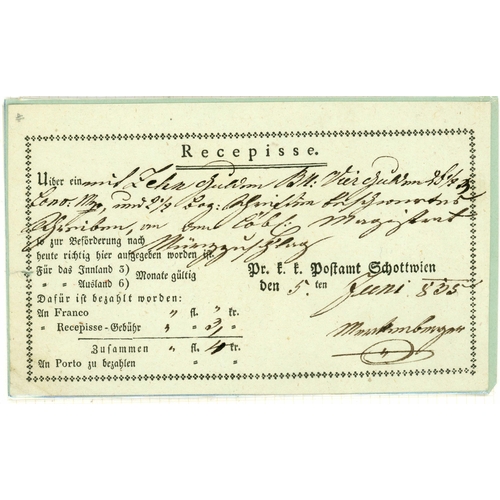 Recepisse.
Uiber ein mit Zehn Gulden Vier Gulden
Conv. Mze, und
Schreiben, an den Löbl: Magistrat
so zur Beförderung nach Mürzzuschlag
heute richtig hier aufgegeben worden ist.
Für das Innland 3) Monate gültig
" " Ausland 6)
Pr. k. k. Postamt Schottwien
den 5. ten Juni 835
Dafür ist bezahlt worden:
An Franco " fl. " kr.
" Recepisse-Gebühr " " 3 "
Zusammen " fl. kr.
An Porto zu bezahlen " "